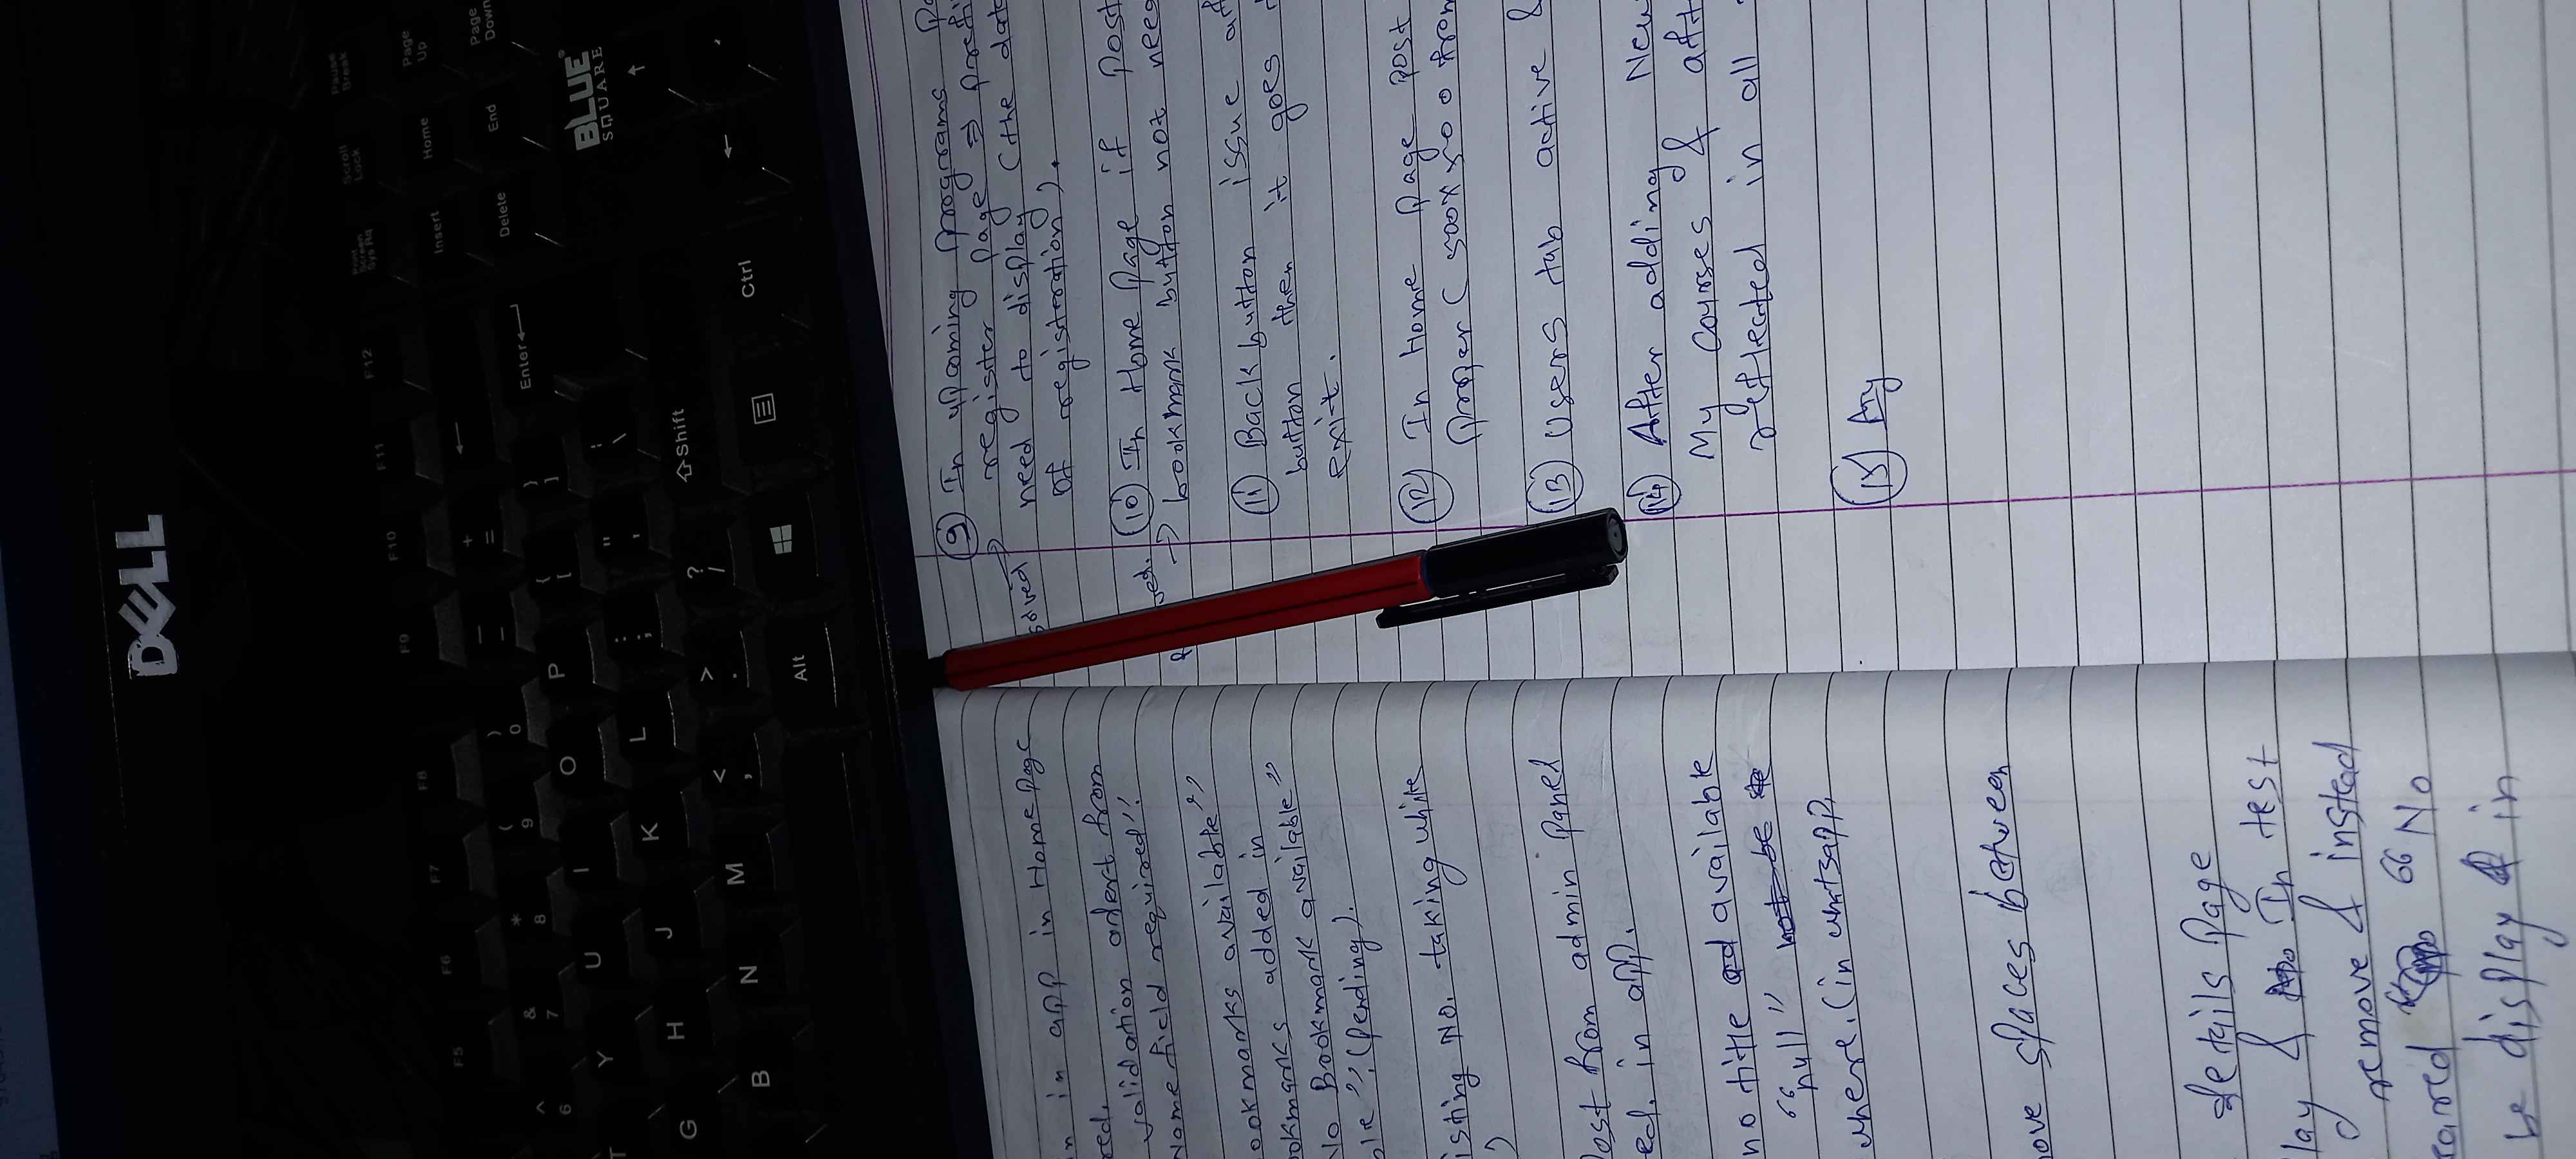 DELL
Print Screen Sys Rq
Scroll Lock
Pause Break
F5 F6 F7 F8 F9 F10 F11 F12
Insert Home Page Up
Delete End Page Down
^ 6 & 7 * 8 ( 9 ) 0 — - + = ←
T Y U I O P { [ } ] Enter
G H J K L : ; " ' | \
B N M < , > . ? / Shift
Alt Ctrl
BLUE
SQUARE
↑
←
in app in Home Page
red.
validation alert from
Name field required"
ookmarks available"
okmarks added in
No Bookmark available"
ble". (pending).
isting No. taking white
)
Post from admin panel
ed. in app.
no title available
"null" not be
where. (in whatsapp,
ove spaces between
details page
lay & In test
remove & instead
"No
be display & in
9 In upcoming programs
solved → register page ⇒ prefi
need to display (the data
of registeration).
10 In Home Page if post
ved. → bookmark button not need
11 Back button issue aft
button then it goes
exit.
12 In Home Page post
proper (500x500 from
13 Users tab active &
14 After adding New
My Courses & aft
reflected in all
15